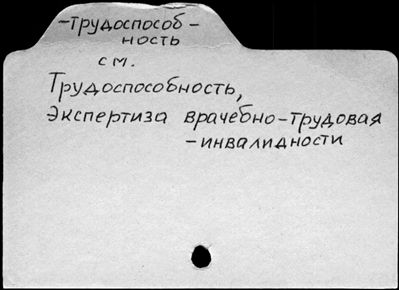 -трудоспособ-
ность
см.
Трудоспособность,
Экспертиза врачебно-трудовая
-инвалидности